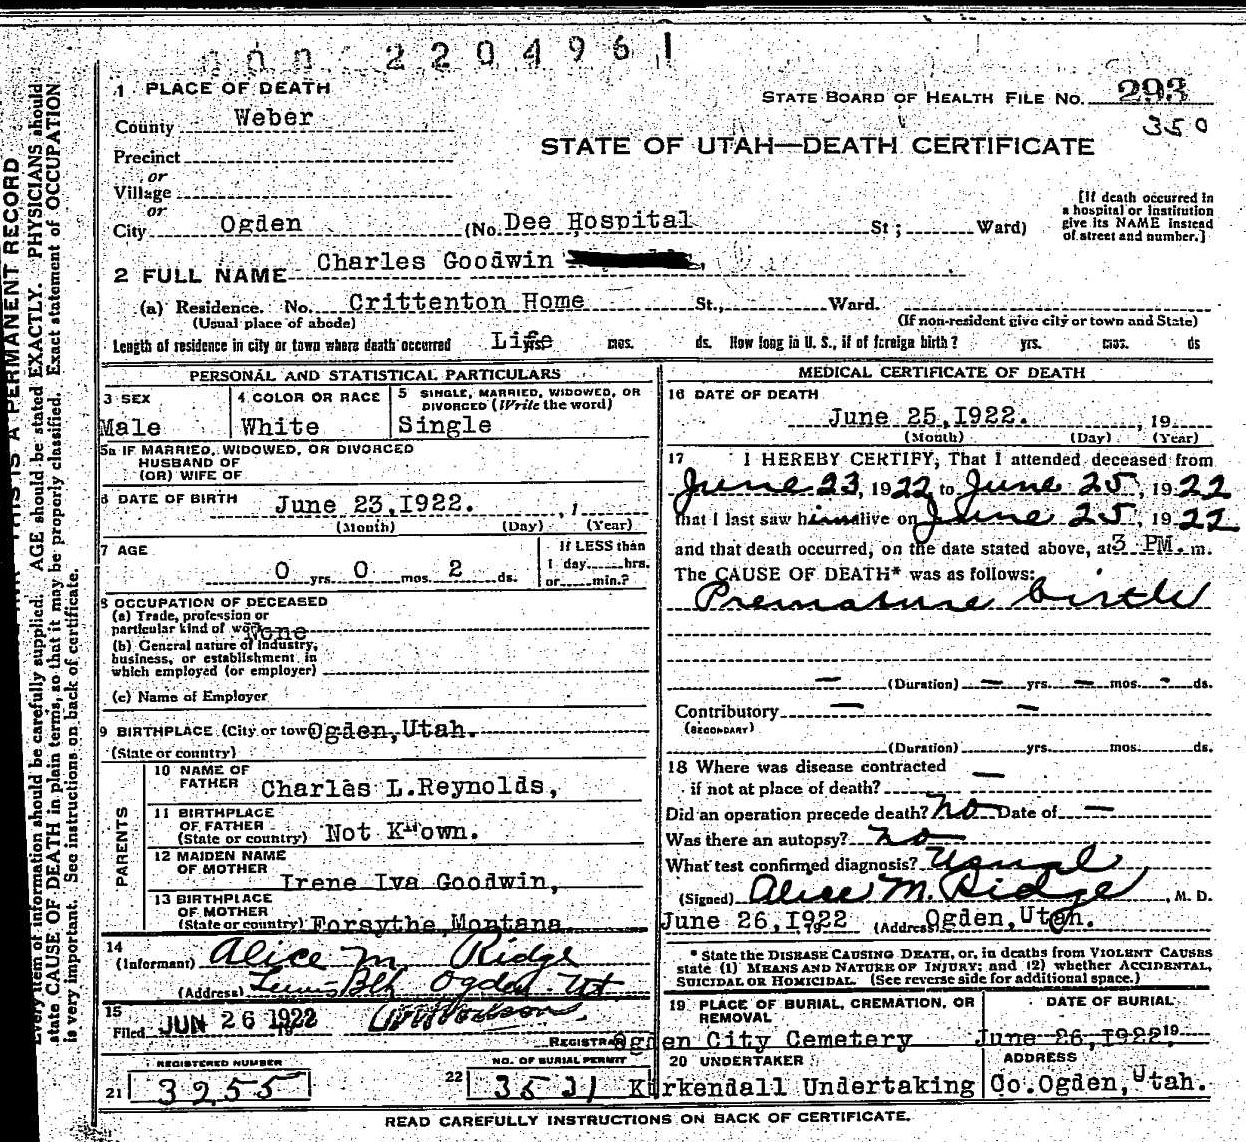 220496
1 PLACE OF DEATH
STATE BOARD OF HEALTH FILE NO. 293
350
County Weber
STATE OF UTAH—DEATH CERTIFICATE
Precinct
or
Village
or
City Ogden (No. Dee Hospital St; Ward)
[If death occurred in
a hospital or institution
give its NAME instead
of street and number.]
2 FULL NAME Charles Goodwin
(a) Residence. No. Crittenton Home St., Ward.
(Usual place of abode) (If non-resident give city or town and State)
Length of residence in city or town where death occurred Life yrs. mos. ds. How long in U. S., if of foreign birth? yrs. mos. ds
PERSONAL AND STATISTICAL PARTICULARS
3 SEX
Male
4 COLOR OR RACE
White
5 SINGLE, MARRIED, WIDOWED, OR
DIVORCED (Write the word)
Single
5a IF MARRIED, WIDOWED, OR DIVORCED
HUSBAND OF
(OR) WIFE OF
6 DATE OF BIRTH June 23,1922.
(Month) (Day) (Year)
7 AGE
0 yrs. 0 mos. 2 ds.
If LESS than
1 day hrs.
or min.?
8 OCCUPATION OF DECEASED
(a) Trade, profession or
particular kind of work None
(b) General nature of industry,
business, or establishment in
which employed (or employer)
(c) Name of Employer
9 BIRTHPLACE (City or town) Ogden,Utah.
(State or country)
PARENTS
10 NAME OF
FATHER Charles L.Reynolds,
11 BIRTHPLACE
OF FATHER
(State or country) Not Known.
12 MAIDEN NAME
OF MOTHER
Irene Iva Goodwin,
13 BIRTHPLACE
OF MOTHER
(State or country) Forsythe,Montana.
14
(Informant) Alice M Ridge
(Address) Lewis Blk Ogden Ut
15
Filed JUN 26 1922 19
REGISTRAR
REGISTERED NUMBER
21 3255
NO. OF BURIAL PERMIT
22 3531
MEDICAL CERTIFICATE OF DEATH
16 DATE OF DEATH
June 25,1922. , 19
(Month) (Day) (Year)
17 I HEREBY CERTIFY, That I attended deceased from
June 23, 1922 to June 25, 1922
that I last saw him alive on June 25, 1922
and that death occurred, on the date stated above, at 3 PM. m.
The CAUSE OF DEATH* was as follows:
Premature birth
— (Duration) — yrs. — mos. - ds.
Contributory — —
(SECONDARY)
(Duration) yrs. mos. ds.
18 Where was disease contracted
if not at place of death? —
Did an operation precede death? no Date of —
Was there an autopsy? no
What test confirmed diagnosis? Usual
(Signed) Alice M. Ridge, M. D.
June 26,1922 19 (Address) Ogden,Utah.
* State the DISEASE CAUSING DEATH, or, in deaths from VIOLENT CAUSES
state (1) MEANS AND NATURE OF INJURY; and (2) whether ACCIDENTAL,
SUICIDAL OR HOMICIDAL. (See reverse side for additional space.)
19 PLACE OF BURIAL, CREMATION, OR
REMOVAL
Ogden City Cemetery
DATE OF BURIAL
June 26,1922. 19
20 UNDERTAKER
Kirkendall Undertaking
ADDRESS
Co.Ogden,Utah.
READ CAREFULLY INSTRUCTIONS ON BACK OF CERTIFICATE.
THIS IS A PERMANENT RECORD
Every item of information should be carefully supplied. AGE should be stated EXACTLY. PHYSICIANS should
state CAUSE OF DEATH in plain terms, so that it may be properly classified. Exact statement of OCCUPATION
is very important. See instructions on back of certificate.